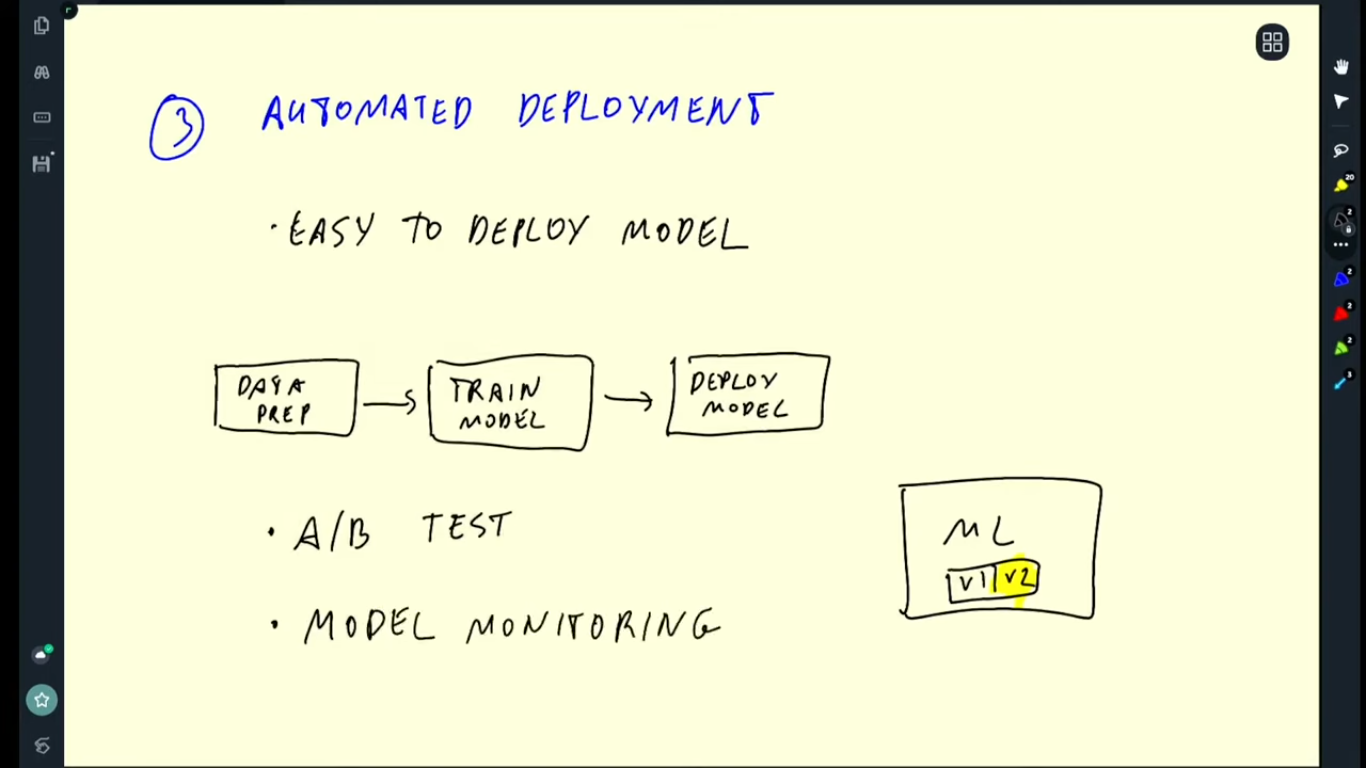 3 AUTOMATED DEPLOYMENT
· EASY TO DEPLOY MODEL
DATA
PREP
TRAIN
MODEL
DEPLOY
MODEL
· A/B TEST
ML
V1 V2
· MODEL MONITORING
20
2
2
2
2
3